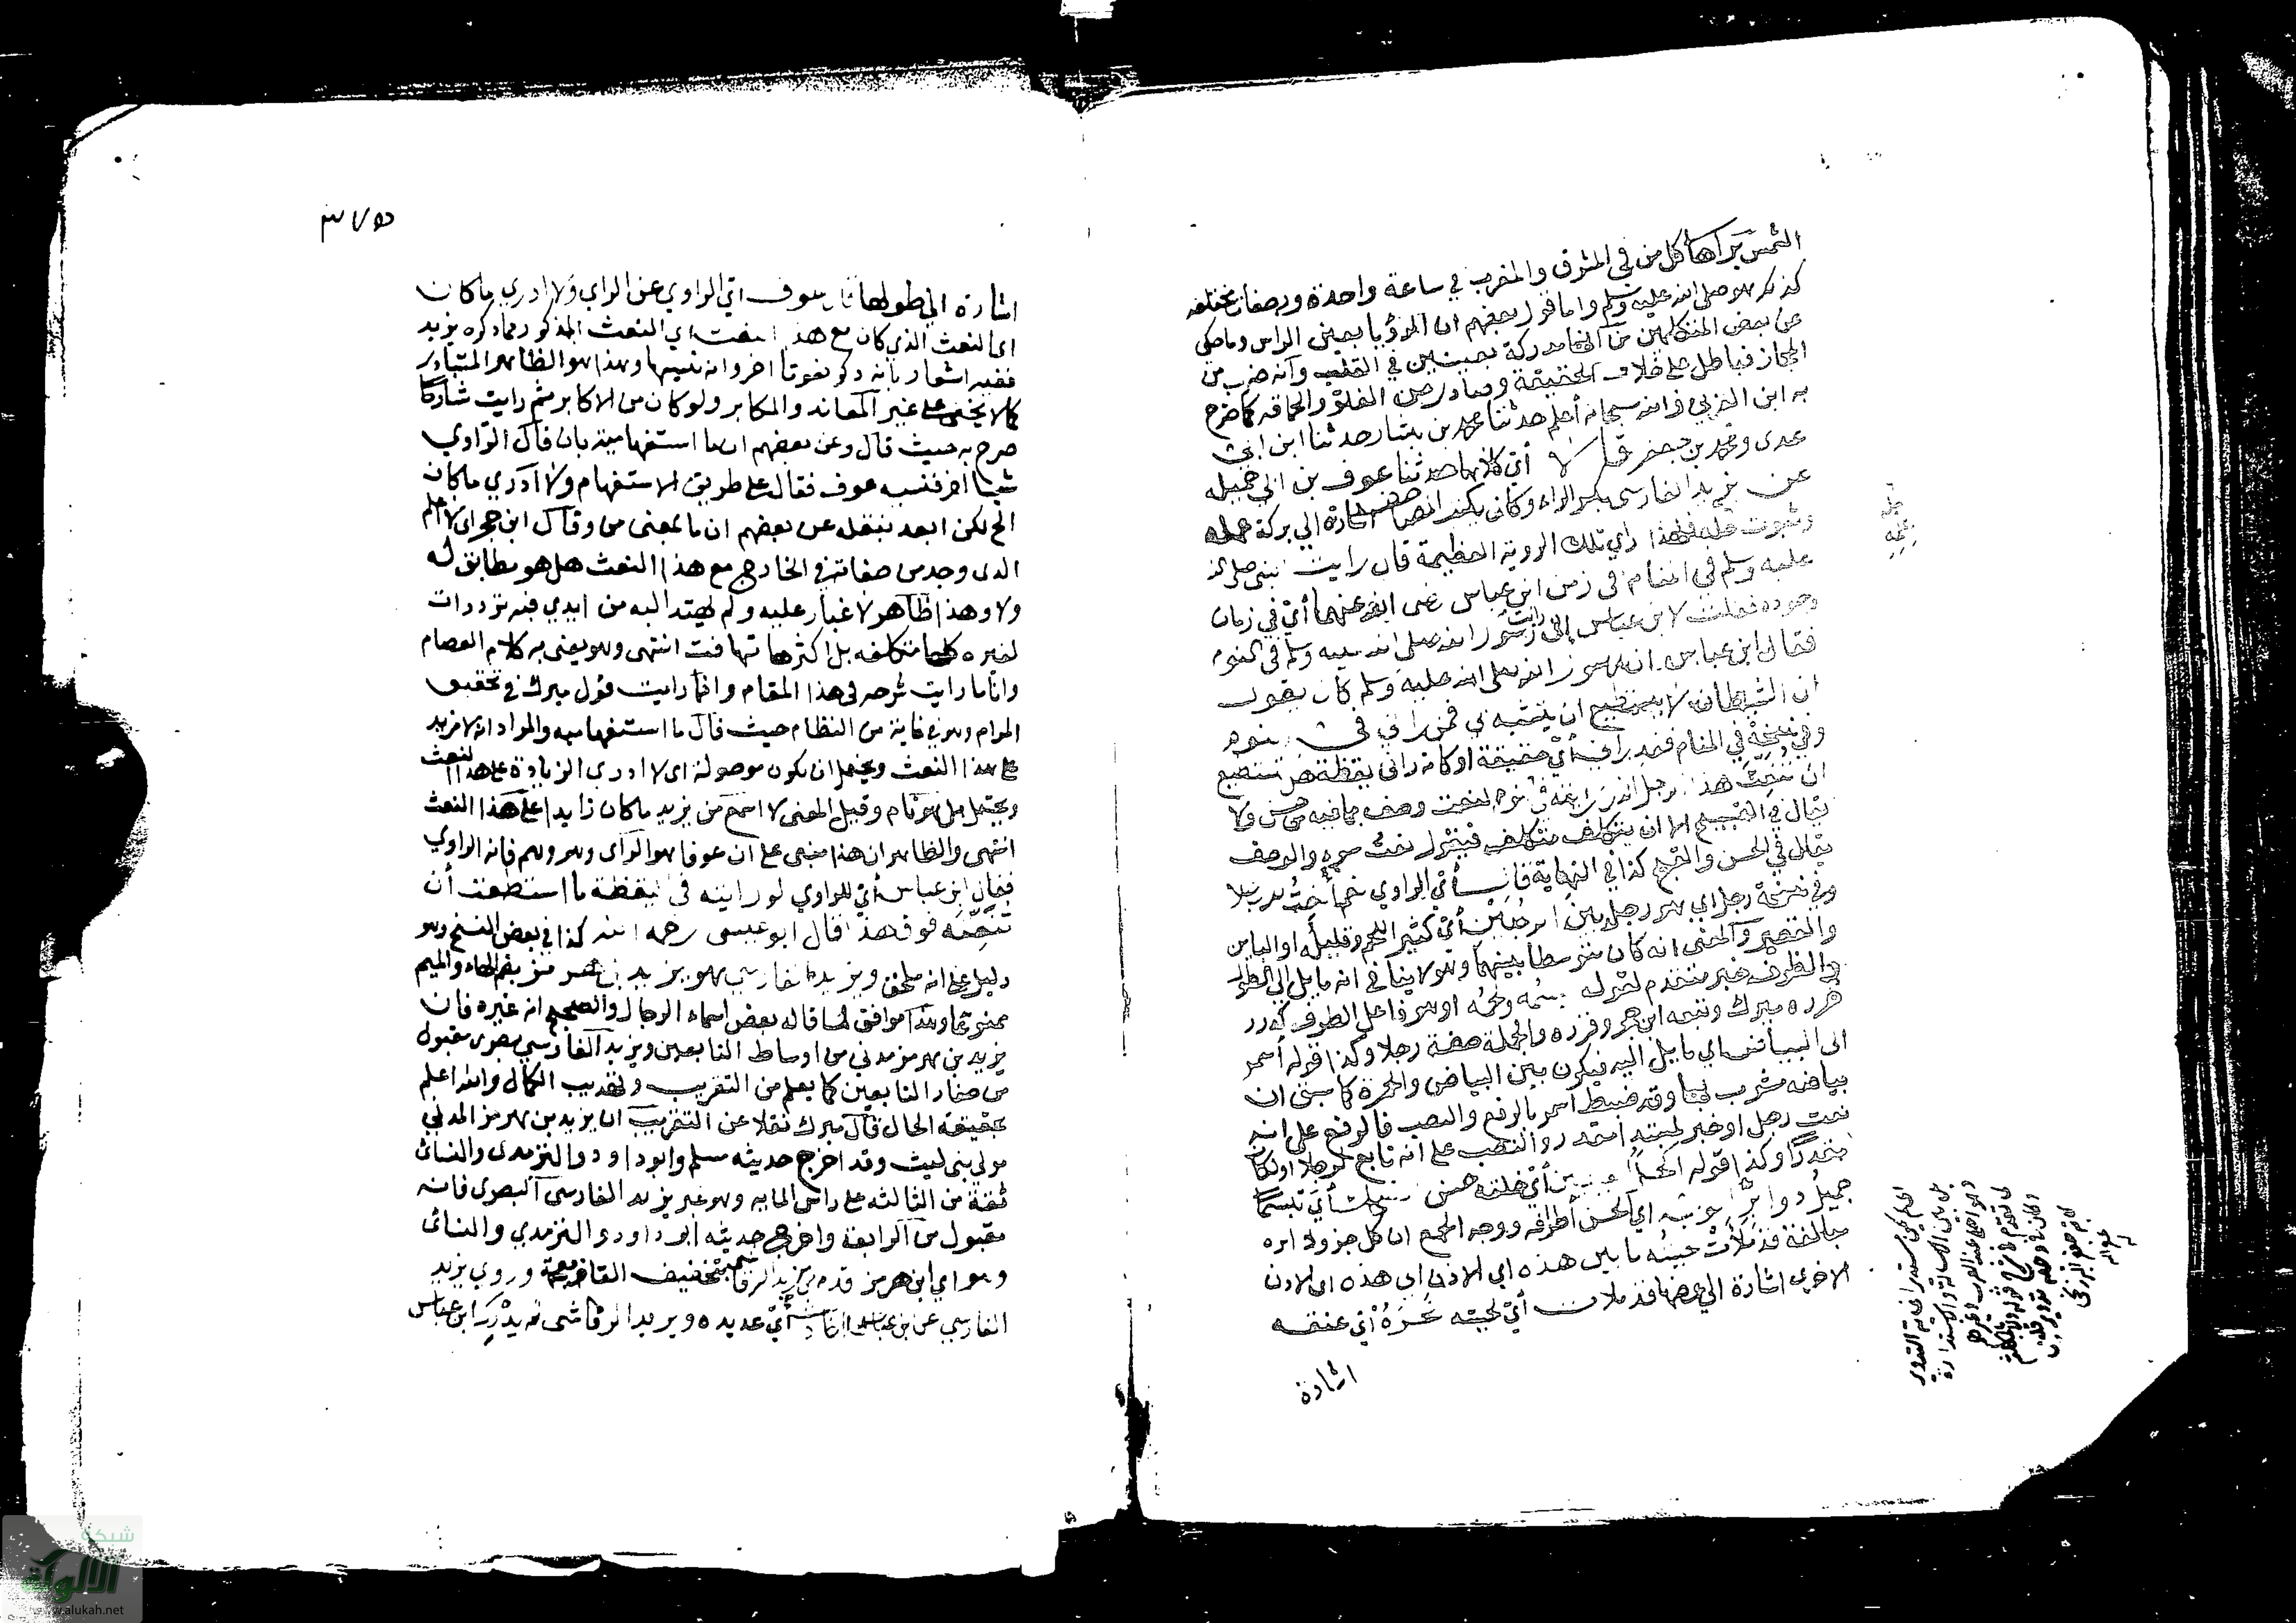 الشمس يراها كل من في المشرق والمغرب في ساعة واحدة وبصفات مختلفة
كذلك هو صلى الله عليه وسلم واما قول بعضهم ان الرؤيا بعيني الراس وما حكي
عن بعض المتكلمين من انها مدركة بعينين في القلب وانه ضرب من
المجاز فباطل على خلاف الحقيقة وصادر من الغلو والحماقة كما صرح
به ابن العربي والله سبحانه أعلم حدثنا محمد بن بشار حدثنا ابن ابي
عدى ومحمد بن جعفر قالا أي كلاهما حدثنا عوف بن ابي جميلة
عن يزيد الفارسى بكسر الراء وكان يكتب المصاحف اشارة الي بركة عمله
وثبوت فلهذا راي تلك الروية العظيمة قال رايت النبي صلى الله
عليه وسلم في المنام في زمن ابن عباس رضى الله عنهما أي في زمان
وجوده فقلت لابن عباس إني رايت رسول الله صلى الله عليه وسلم في النوم
فقال ابن عباس ان رسول الله صلى الله عليه وسلم كان يقول
ان الشيطان لا يستطيع ان يتشبه بي فمن راني في النوم
وفي نسخة في المنام فقد راني أي حقيقة او كانه راني يقظة هل تستطيع
ان تنعت هذا الرجل الذي رايته في النوم النعت وصف بما فيه من حسن ولا
يقال في القبيح الا ان يتكلف متكلف فيقول نعت سوء والوصف
يقال في الحسن والقبح كذا في النهاية قال أي الراوي نعم أنعت لك رجلا
وفي نسخة رجل اي هو رجل بين الرجلين أي كثير اللحم وقليله او البائن
والقصير والمعنى انه كان متوسطا بينهما وهو لا ينافى انه مايل الي الطول
والظرف خبر متقدم لقوله جسمه ولحمه او هو فاعل الظرف
قرره ميرك وتبعه ابن حجر وقرره والجملة صفة رجلا وكذا قوله أسمر
الى البياض اي مايل اليه فيكون بين البياض والحمرة كما سبق ان
بياضه مشرب بها وقد ضبط اسمر بالرفع والنصب فالرفع على انه
نعت رجل او خبر لمبتدا مقدر والنصب على انه تابع لرجلا او لكان
مقدرًا وكذا قوله اكحل العينين أي خلقة حسن الضحك أي تبسمًا
جميل دوائر الوجه اي الحسن أطرافه ووجه الجمع ان كل جزو دائره
مبالغة قد ملأت لحيته ما بين هذه اي الاذن الى هذه اي الاذن
الاخرى اشارة الي عرضها قد ملات أي لحيته نحره أي عنقه
اشارة
٣٧٥
اشارة الي طولها قال عوف اي الراوي عن الراي ولا ادري ما كان
اى النعت الذي كان مع هذا النعت اي النعت المذكور مما ذكره يزيد
ففيه اشعار بانه ذكر نعوتا اخر وانه نسيها وهذا هو الظاهر المتبادر
كما لا يخفى على غير المعاند والمكابر ولو كان من الاكابر ثم رايت شارحًا
صرح به حيث قال وعن بعضهم ان ما استفهامية بان قال الراوي
شيا اخر فنسيه عوف فقال على طريق الاستفهام ولا ادري ما كان
الخ لكن ابعد بنقله عن بعضهم ان ما بمعنى من وقال ابن حجر اى لا اعلم
الذى وجد من صفاته في الخارج مع هذا النعت هل هو مطابق له
ولا وهذا ظاهر لا غبار عليه ولم يهتد اليه من ابدي فيه ترددات
لغيره كلها متكلفة بل اكثرها تهافت انتهى وهو يعنى به كلام العصام
وانا ما رايت شرحه في هذا المقام وانما رايت قول ميرك في تحقيق
المرام وهو في غاية من النظام حيث قال ما استفهامية والمراد انه لا مزيد
على هذا النعت ويحتمل ان يكون موصولة اى لا ادري الزيادة على هذا النعت
ويحتمل هل هو تام وقيل المعنى لا اسمع من يزيد ما كان زايدا على هذا النعت
انتهى والظاهر ان هذا مبنى على ان عوفا هو الراى وهو وهم فانه الراوي
فقال ابن عباس أي للراوي لو رايته في اليقظة ما استطعت أن
تنعته فوق هذا قال ابو عيسى رحمه الله كذا في بعض النسخ وهو
دليل على انه ملحق ويزيد الفارسي هو يزيد بن هرمز بضم الهاء والميم
ممنوعا وهذا موافق لما قاله بعض اسماء الرجال والصحيح انه غيره فان
يزيد بن هرمز مدني من اوساط التابعين ويزيد الفارسي بصرى مقبول
من صغار التابعين كما يعلم من التقريب وتهذيب الكمال والله اعلم
بحقيقة الحال قال ميرك نقلا عن التقريب ان يزيد بن هرمز المدني
مولى بني ليث وقد اخرج حديثه مسلم وابو داود والترمذى والنسائى
ثقة من الثالثة على راس الماية وهو غير يزيد الفارسى البصرى فانه
مقبول من الرابعة واخرج حديثه ابو داود والترمذي والنسائى
وهو اي ابن هرمز قدم من يزيد الرقاشى بتخفيف القاف معجمة وروي يزيد
الفارسي عن ابن عباس احاديث أي عديده ويزيد الرقاشى لم يدرك ابن عباس
شبكة
الألوكة
www.alukah.net